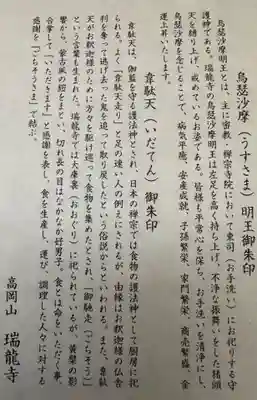 烏瑟沙摩（うすさま）明王御朱印
烏瑟沙摩明王とは、主に密教・禅宗寺院において東司（お手洗い）にお祀りする守
護神である。瑞龍寺の烏瑟沙摩明王は左足を高く持ち上げ、不浄な振舞いをした猪頭
天を縛り上げ、戒めているお姿である。皆様も平常心を保ち、お手洗いを清浄にし、
烏瑟沙摩を念じることで、病気平癒、安産成就、子孫繁栄、家門繁栄、商売繁盛、金
運上昇いたします。
韋駄天（いだてん）御朱印
韋駄天は、伽藍を守る護法神とされ、日本の禅宗では食物の護法神として厨房に祀
られる。よく「韋駄天走り」と足の速い人の例えにされるが、由縁はお釈迦様の仏舎
利を奪って逃げ去った鬼を追って取り戻したという俗説からといわれる。また、韋駄
天がお釈迦様のために方々を駆け巡って食物を集めたとされ、「御馳走（ごちそう）」
という言葉も生まれた。瑞龍寺では大庫裏（おおくり）に祀られているが、黄檗の影
響から、蒙古風の鎧をまとい、切れ長の目はなかなか好男子。食とは命をいただく事、
合掌して「いただきます」と感謝を表し、食を生産し、運び、調理した人々に対する
感謝を「ごちそうさま」で結ぶ。
高岡山 瑞龍寺